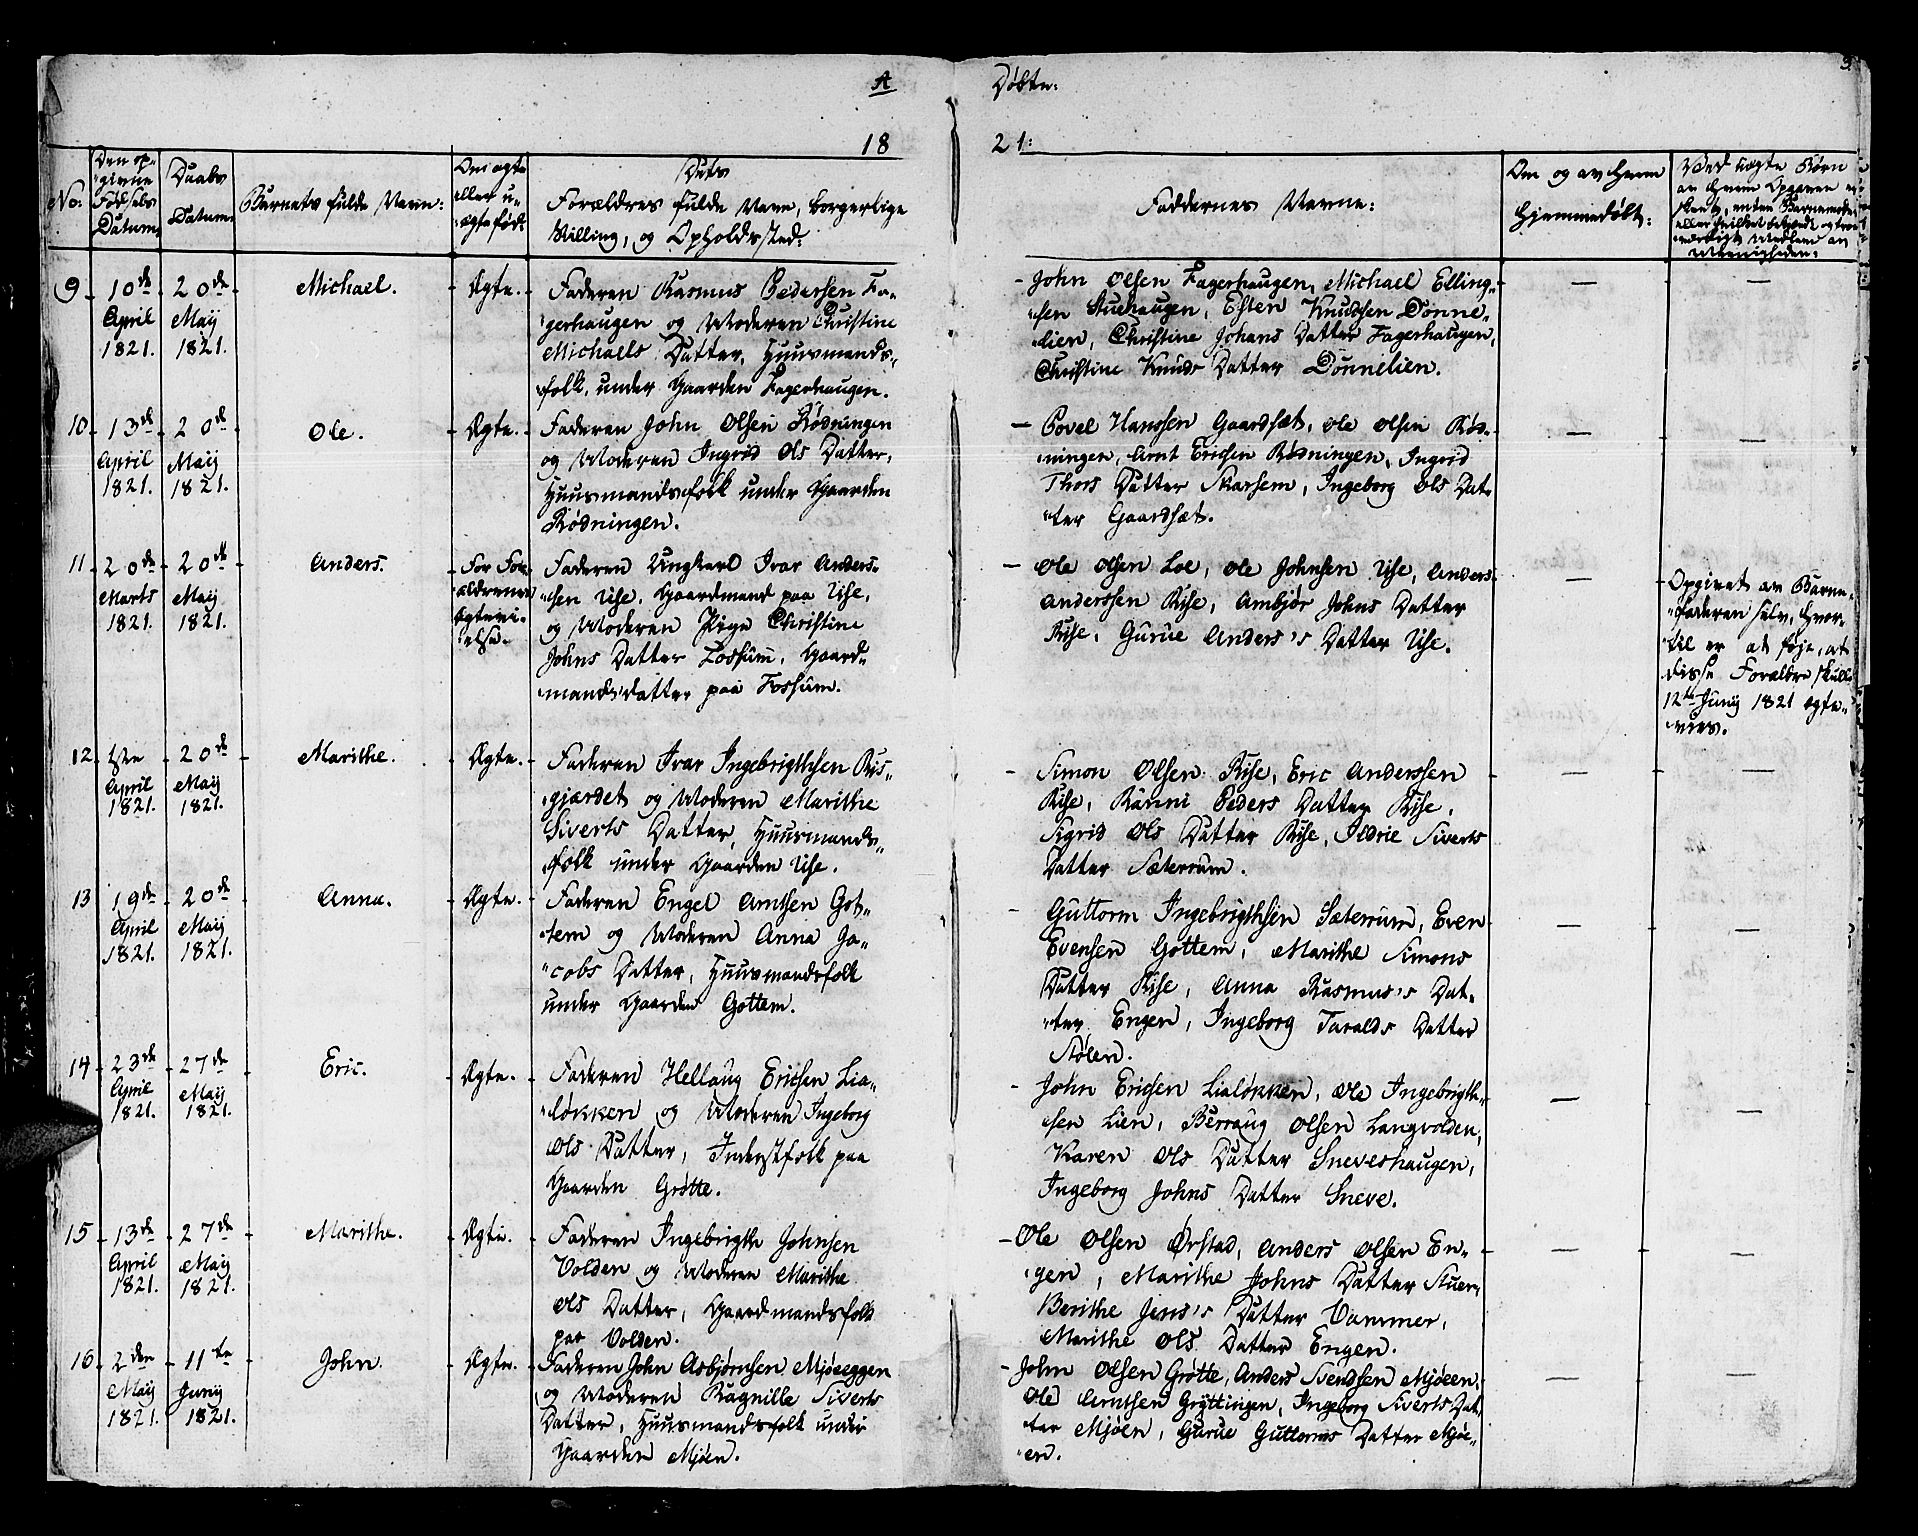 A
Døbte:
3
18
21:
No:
Den op-
givne
Fødsels
Datum
Daabs
Datum
Barnets fulde Navn:
Om ægte
eller u-
ægte født:
Dets
Forældres fulde Navn, borgerlige
Stilling, og Opholdssted:
Faddernes Navne:
Om og av hvem
hjemmedøbt:
Ved uægte Børn
9
10de
April
1821.
20de
Maij
1821.
Michael.
Ægte.
Faderen Rasmus Pedersen Fa-
gerhaugen og Moderen Christine
Michaels Datter, Huusmands-
folk, under Gaarden Fagerhaugen.
John Olsen Fagerhaugen, Michael Elling-
sen Stuehaugen, Esten Knudsen Donne-
lien, Christine Johans Datter Fagerhaugen,
Christine Knuds Datter Donnelien.
10
13de
April
1821.
20de
Maij
1821.
Ole.
Ægte.
Faderen John Olsen Rødningen
og Moderen Ingrid Ols Datter,
Huusmandsfolk under Gaarden
Rødningen.
Povel Hanssen Gaardsæt, Ole Olsen Rød-
ningen, Arnt Ericsen Rødningen, Ingrid
Thors Datter Skarsem, Ingeborg Ols Dat-
ter Gaardsæt.
11
20de
Marts
1821.
20de
Maij
1821.
Anders.
Før For-
ældrenes
Ægtevi-
else.
Faderen Ungkarl Ivar Anders-
sen Vise, Gaardmand paa Vise,
og Moderen Pige Christine
Johns Datter Fossum, Gaard-
mandsdatter paa Fossum.
Ole Olsen Loe, Ole Johnsen Vise, Anders
Anderssen Rise, Ambjør Johns Datter
Rise, Gurue Anders's Datter Vise.
Opgivet av Barne-
faderen selv, hvor-
til er at føje, at
disse Forældre skulle
12te Junij 1821 ægte-
vies.
12
1ste
April
1821.
20de
Maij
1821.
Marithe.
Ægte.
Faderen Ivar Ingebrigthsen Ris-
gjærdet og Moderen Marithe
Siverts Datter, Huusmands-
folk under Gaarden Vise.
Simon Olsen Rise, Eric Anderssen
Rise, Ranni Peders Datter Rise,
Sigrid Ols Datter Rise, Ildrie Siverts
Datter Sæterrum.
13
19de
April
1821.
20de
Maij
1821.
Anna.
Ægte.
Faderen Engel Arntsen Got-
tem og Moderen Anna Ja-
cobs Datter, Huusmandsfolk
under Gaarden Gottem.
Guttorm Ingebrigthsen Sæterrum, Even
Evensen Gottem, Marithe Simons
Datter Rise, Anna Rasmus's Dat-
ter Engen, Ingeborg Taralds Datter
Stølen.
14
23de
April
1821.
27de
Maij
1821.
Eric.
Ægte.
Faderen Hellaug Ericsen Lia-
løkken og Moderen Ingeborg
Ols Datter, Inderstfolk paa
Gaarden Grøtte.
John Ericsen Lialøkken, Ole Ingebrigth-
sen Lien, Berraug Olsen Langvolden,
Karen Ols Datter Sneveshaugen,
Ingeborg Johns Datter Sneve.
15
13de
April
1821.
27de
Maij
1821.
Marithe.
Ægte.
Faderen Ingebrigth Johnsen
Volden og Moderen Marithe
Ols Datter, Gaardmandsfolk
paa Volden.
Ole Olsen Ørstad, Anders Olsen En-
gen, Marithe Johns Datter Stuen
Berithe Jens's Datter Vammer,
Marithe Ols Datter Engen.
16
2den
Maij
1821.
11te
Junij
1821.
John.
Ægte.
Faderen John Asbjørnsen Mjøeeggen
og Moderen Ragnille Siverts
Datter, Huusmandsfolk under
Gaarden Mjøen.
John Olsen Grøtte, Anders Svendsen Mjøeen,
Ole Arntsen Grøttingen, Ingeborg Siverts Dat-
ter Mjøen, Gurue Guttorms Datter Mjøe-
en.